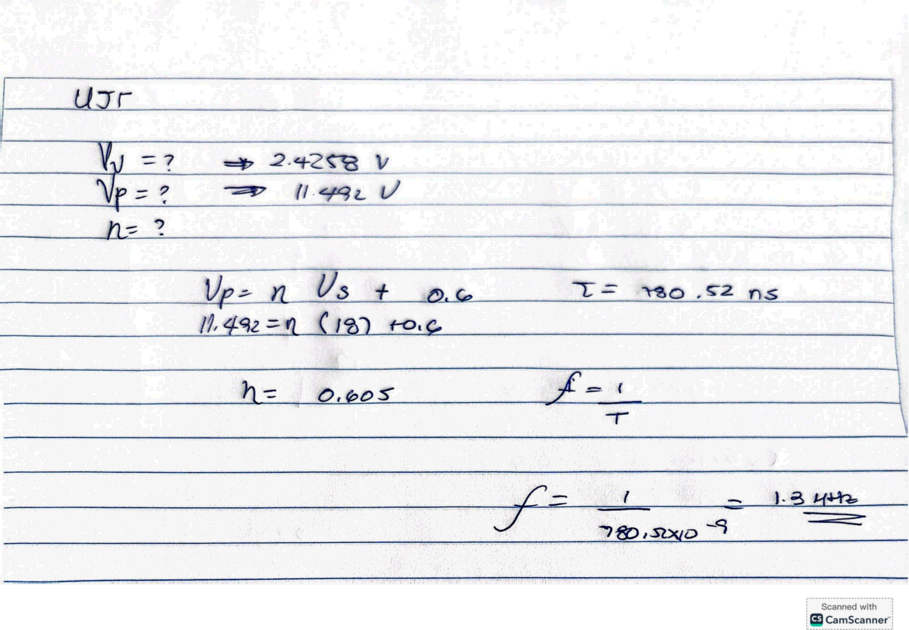 UJT
Vv = ? ⇒ 2.4258 V
Vp = ? ⇒ 11.492 V
n = ?
Vp = n Vs + 0.6 T = 780.52 ns
11.492 = n (18) + 0.6
n = 0.605 f = 1/T
f = 1/780.52x10^-9 = 1.3 MHz
Scanned with
CS CamScanner